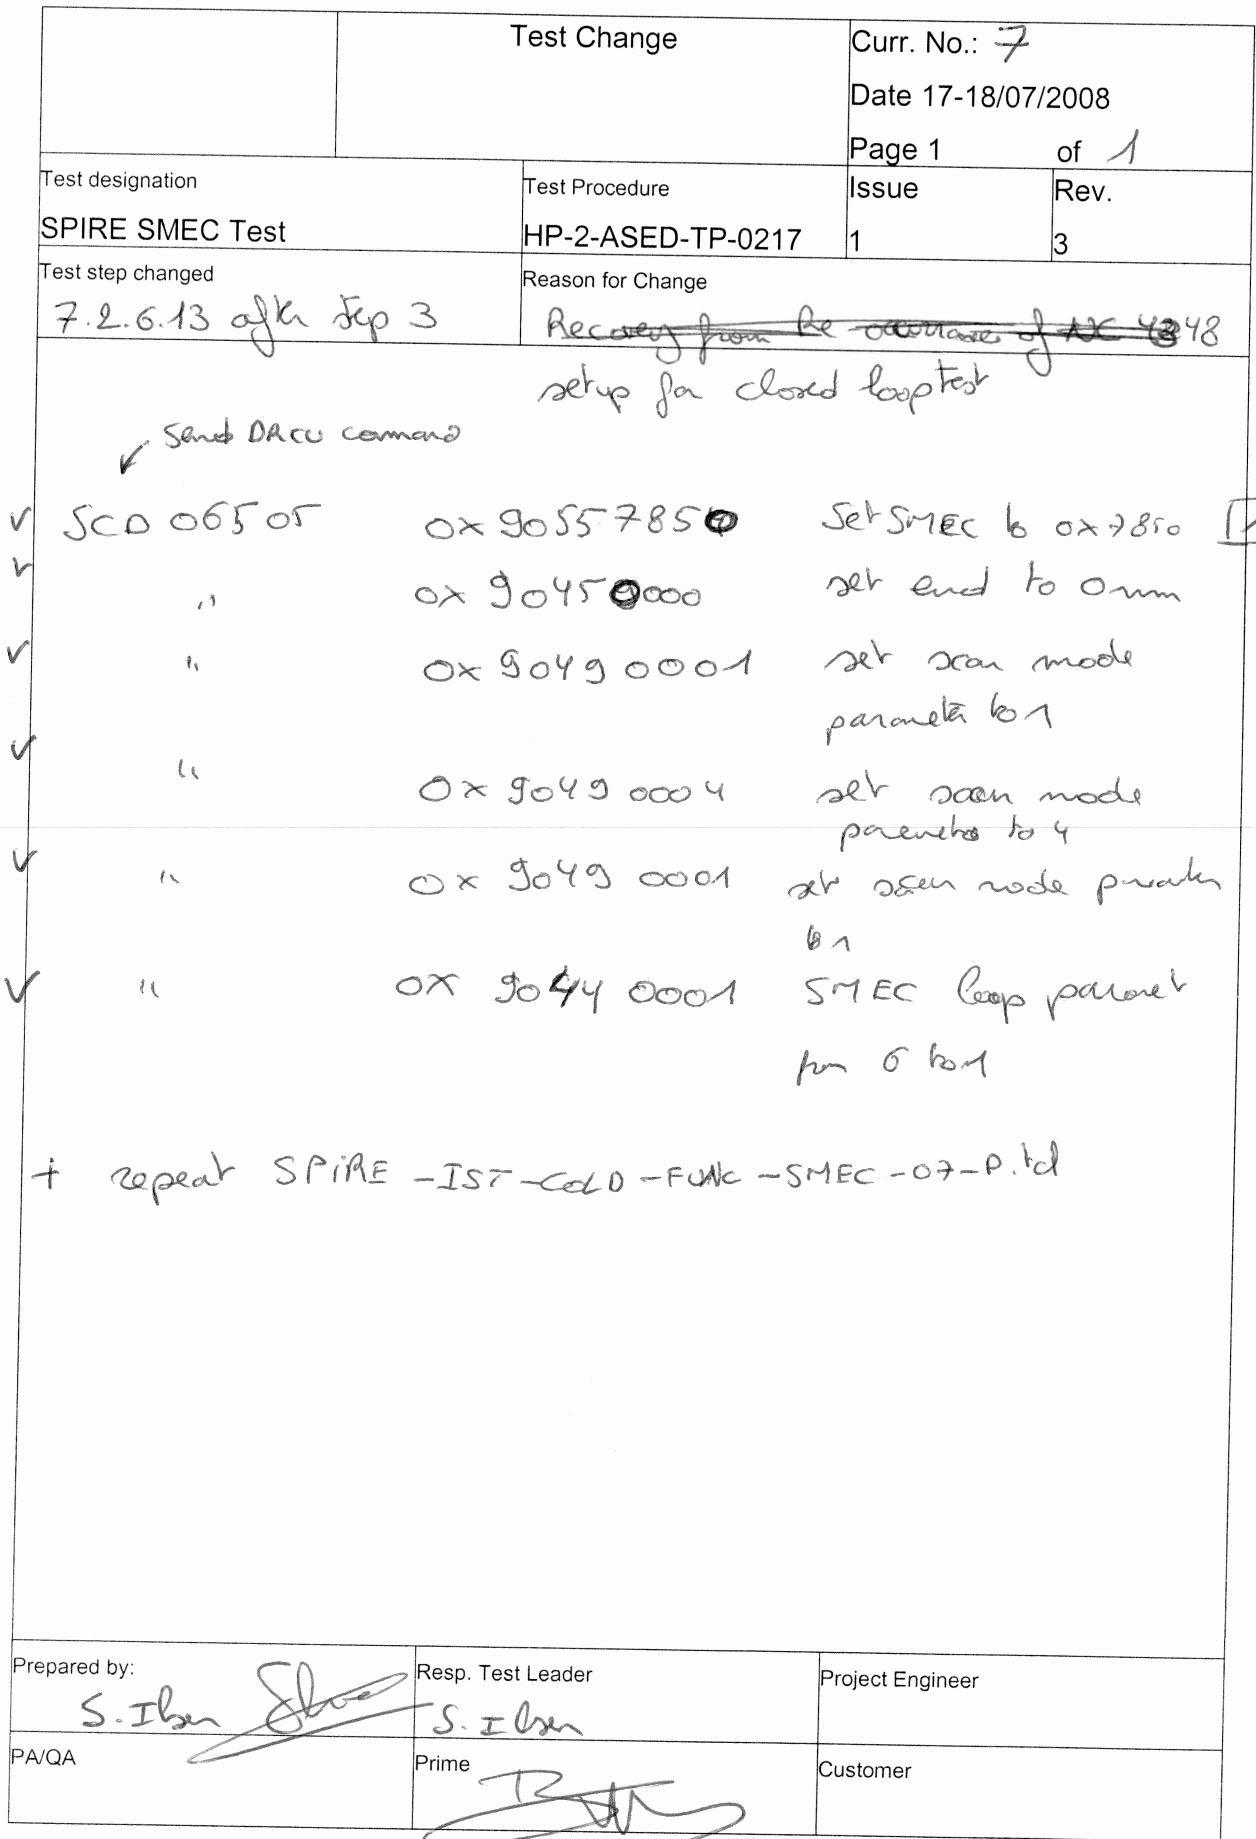 Test Change
Curr. No.: 7
Date 17-18/07/2008
Page 1 of 1
Test designation
SPIRE SMEC Test
Test Procedure
HP-2-ASED-TP-0217
Issue
1
Rev.
3
Test step changed
7.2.6.13 after step 3
Reason for Change
Recovery from Re-occurrance of NC 4348
setup for closed loop test
Send DRCU command
SCD 06505 0x90557850 Set SMEC to 0x7850
" 0x90450000 set end to 0mm
" 0x90490001 set scan mode
parameter to 1
" 0x90490004 set scan mode
parameter to 4
" 0x90490001 set scan mode parameter
to 1
" 0x90440001 SMEC loop paramet
to 1
+ repeat SPIRE-IST-COLD-FUNC-SMEC-07-P.tcl
Prepared by:
S. Ilsen
Resp. Test Leader
S. Ilsen
Project Engineer
PA/QA
Prime
Customer